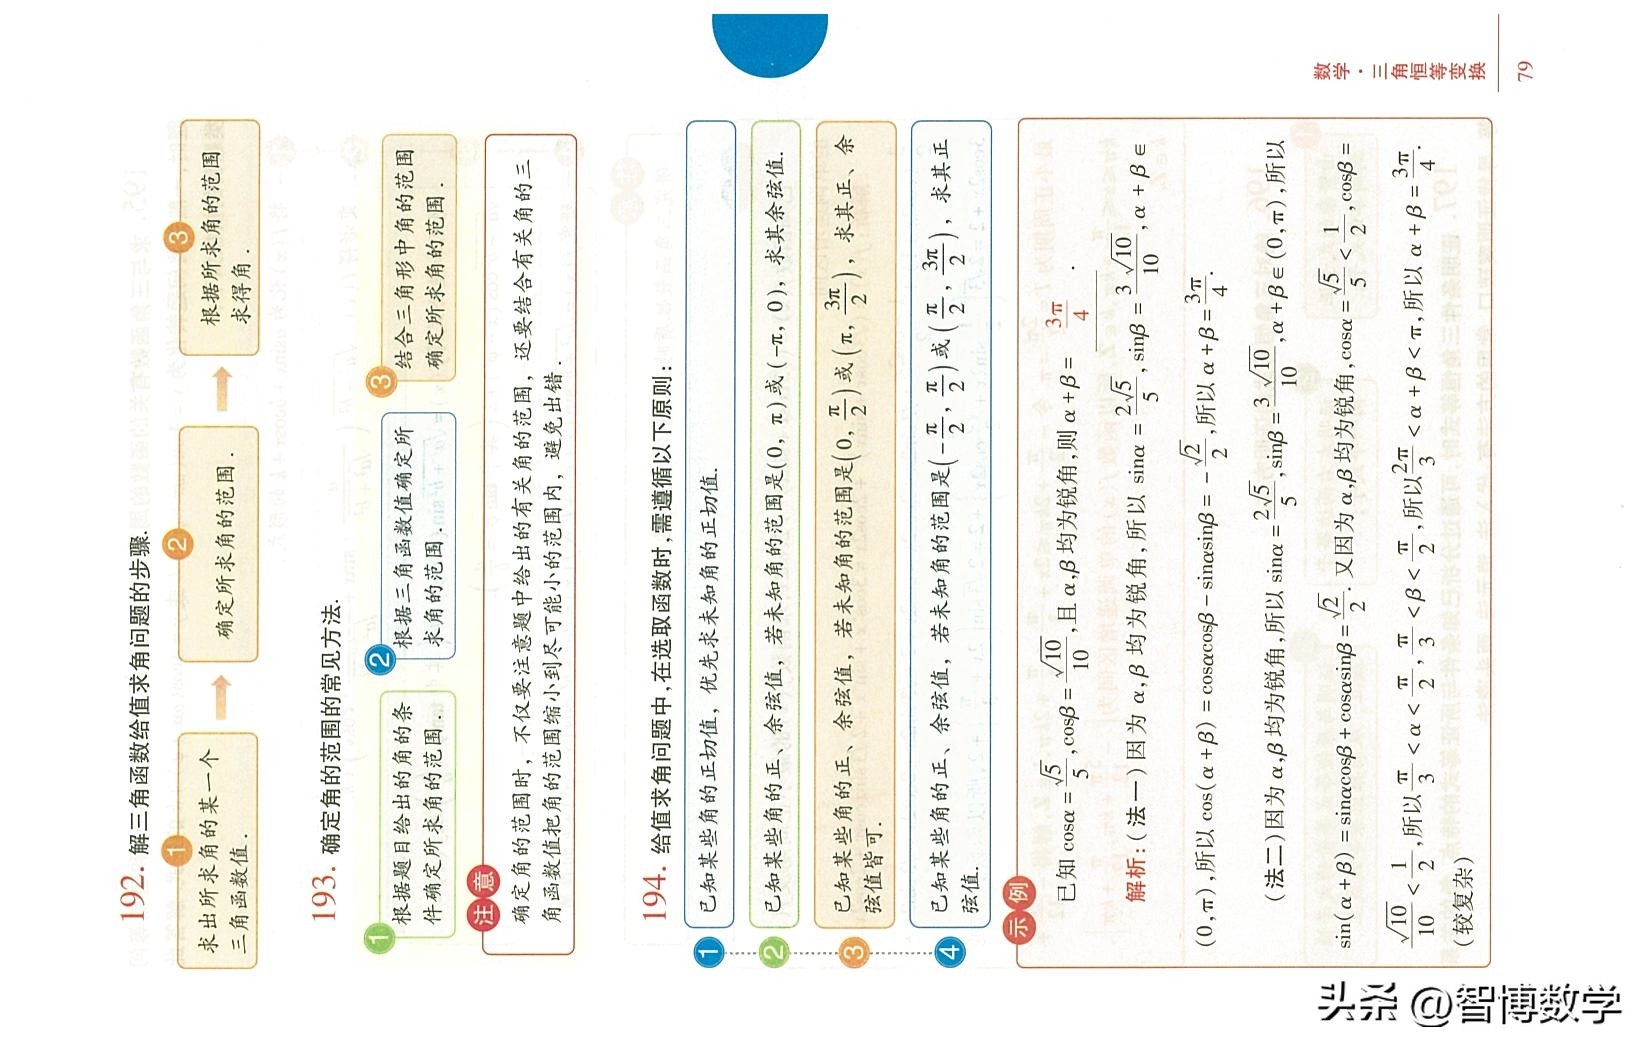 192. 解三角函数给值求角问题的步骤.
1
求出所求角的某一个
三角函数值.
2
确定所求角的范围.
3
根据所求角的范围
求得角.
193. 确定角的范围的常见方法.
1
根据题目给出的角的条
件确定所求角的范围.
2
根据三角函数值确定所
求角的范围.
3
结合三角形中角的范围
确定所求角的范围.
注意
确定角的范围时，不仅要注意题中给出的有关角的范围，还要结合有关角的三
角函数值把角的范围缩小到尽可能小的范围内，避免出错.
194. 给值求角问题中,在选取函数时,需遵循以下原则:
1 已知某些角的正切值，优先求未知角的正切值.
2 已知某些角的正、余弦值，若未知角的范围是(0, π)或(-π, 0)，求其余弦值.
3 已知某些角的正、余弦值，若未知角的范围是(0, π/2)或(π, 3π/2)，求其正、余
弦值皆可.
4 已知某些角的正、余弦值，若未知角的范围是(-π/2, π/2)或(π/2, 3π/2)，求其正
弦值.
示例
已知 cosα=√5/5,cosβ=√10/10,且 α,β 均为锐角,则 α+β= 3π/4 .
解析:(法一)因为 α,β 均为锐角,所以 sinα=2√5/5,sinβ=3√10/10,α+β∈
(0,π),所以 cos(α+β)=cosαcosβ-sinαsinβ=-√2/2,所以 α+β=3π/4.
(法二)因为 α,β 均为锐角,所以 sinα=2√5/5,sinβ=3√10/10,α+β∈(0,π),所以
sin(α+β)=sinαcosβ+cosαsinβ=√2/2.又因为 α,β 均为锐角,cosα=√5/5<1/2,cosβ=
√10/10<1/2,所以π/3<α<π/2,π/3<β<π/2,所以2π/3<α+β<π,所以 α+β=3π/4.
(较复杂)
数学·三角恒等变换
79
头条 @智博数学